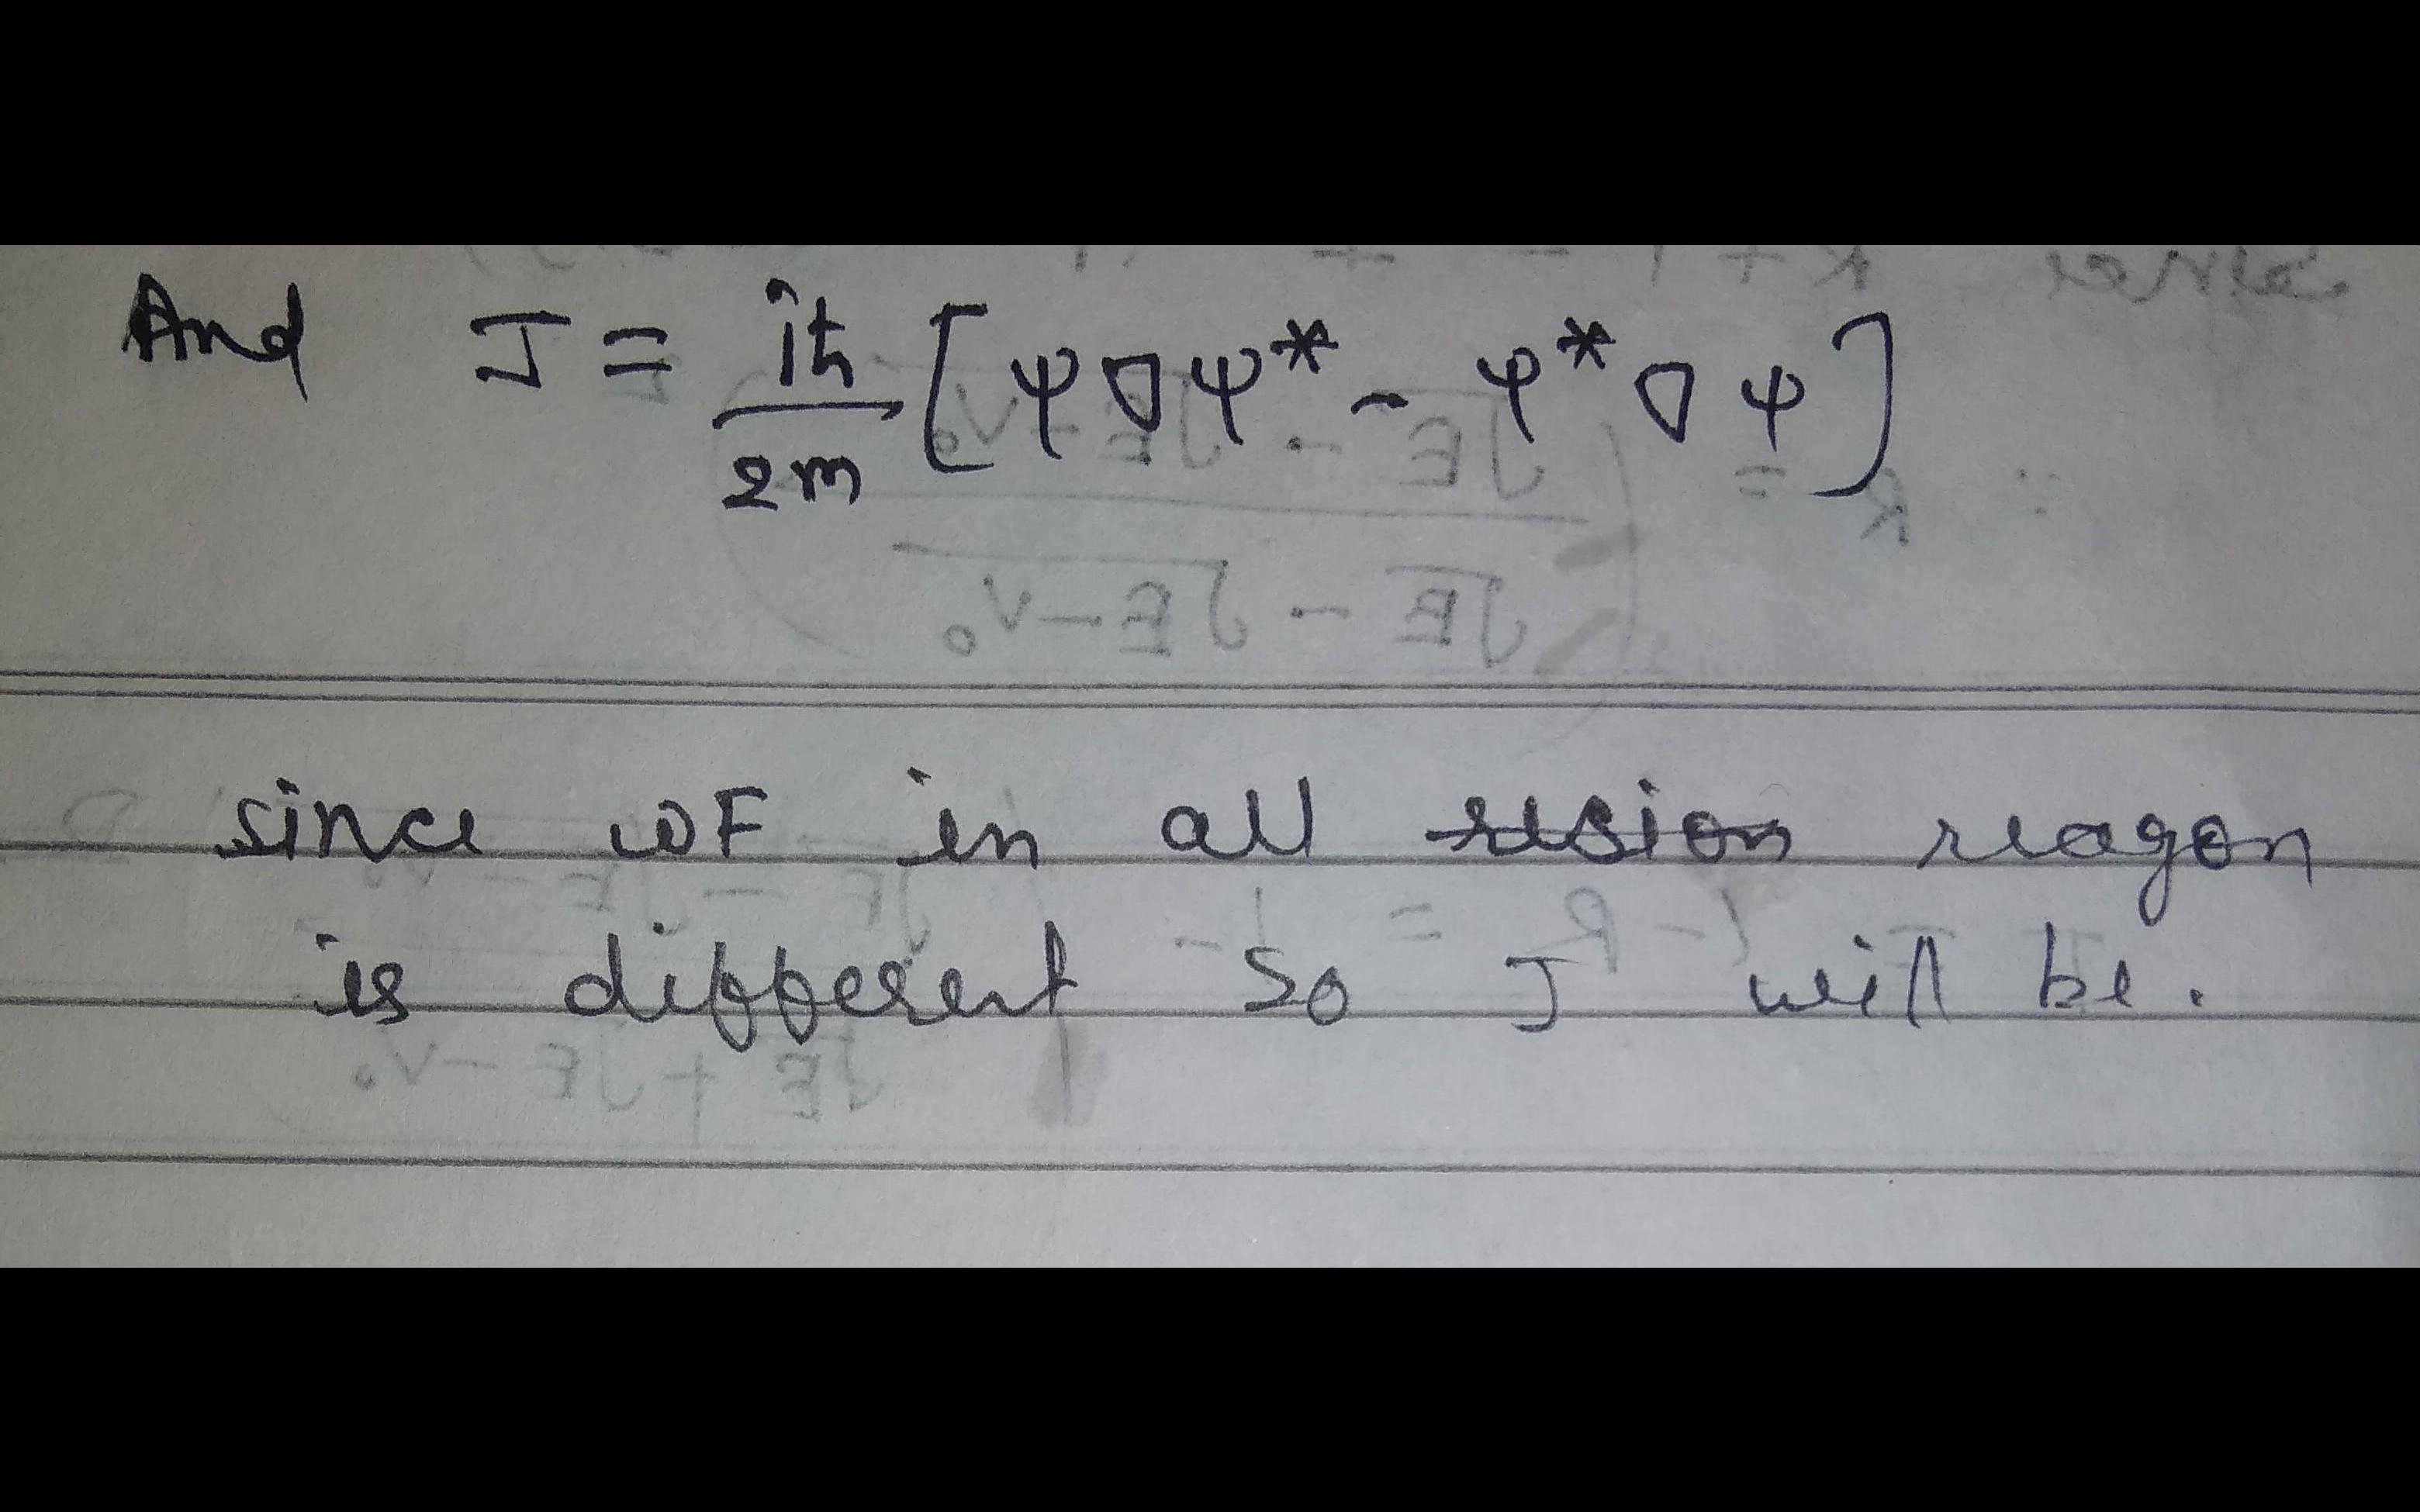 And J = iħ/2m [ψ∇ψ* - ψ*∇ψ]
since WF in all resion reagon
is different so J will be.